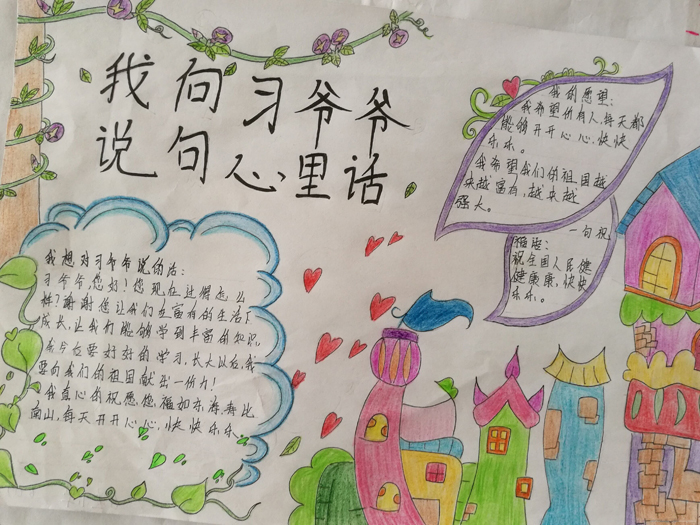 我向习爷爷
说句心里话
我的愿望:
我希望所有人,每天都
能够开开心心,快快
乐乐。
我希望我们的祖国越
来越富有,越来越
强大。
一句祝
福语:
祝全国人民健
健康康,快快
乐乐。
我想对习爷爷说的话:
习爷爷,您好!您现在过得怎么
样?谢谢您让我们在富有的生活下
成长,让我们能够学到丰富的知识,
要好好的学习,长大以后,我
要向我们的祖国献出一份力!
我衷心的祝愿您福如东海,寿比
南山,每天开开心心,快快乐乐。